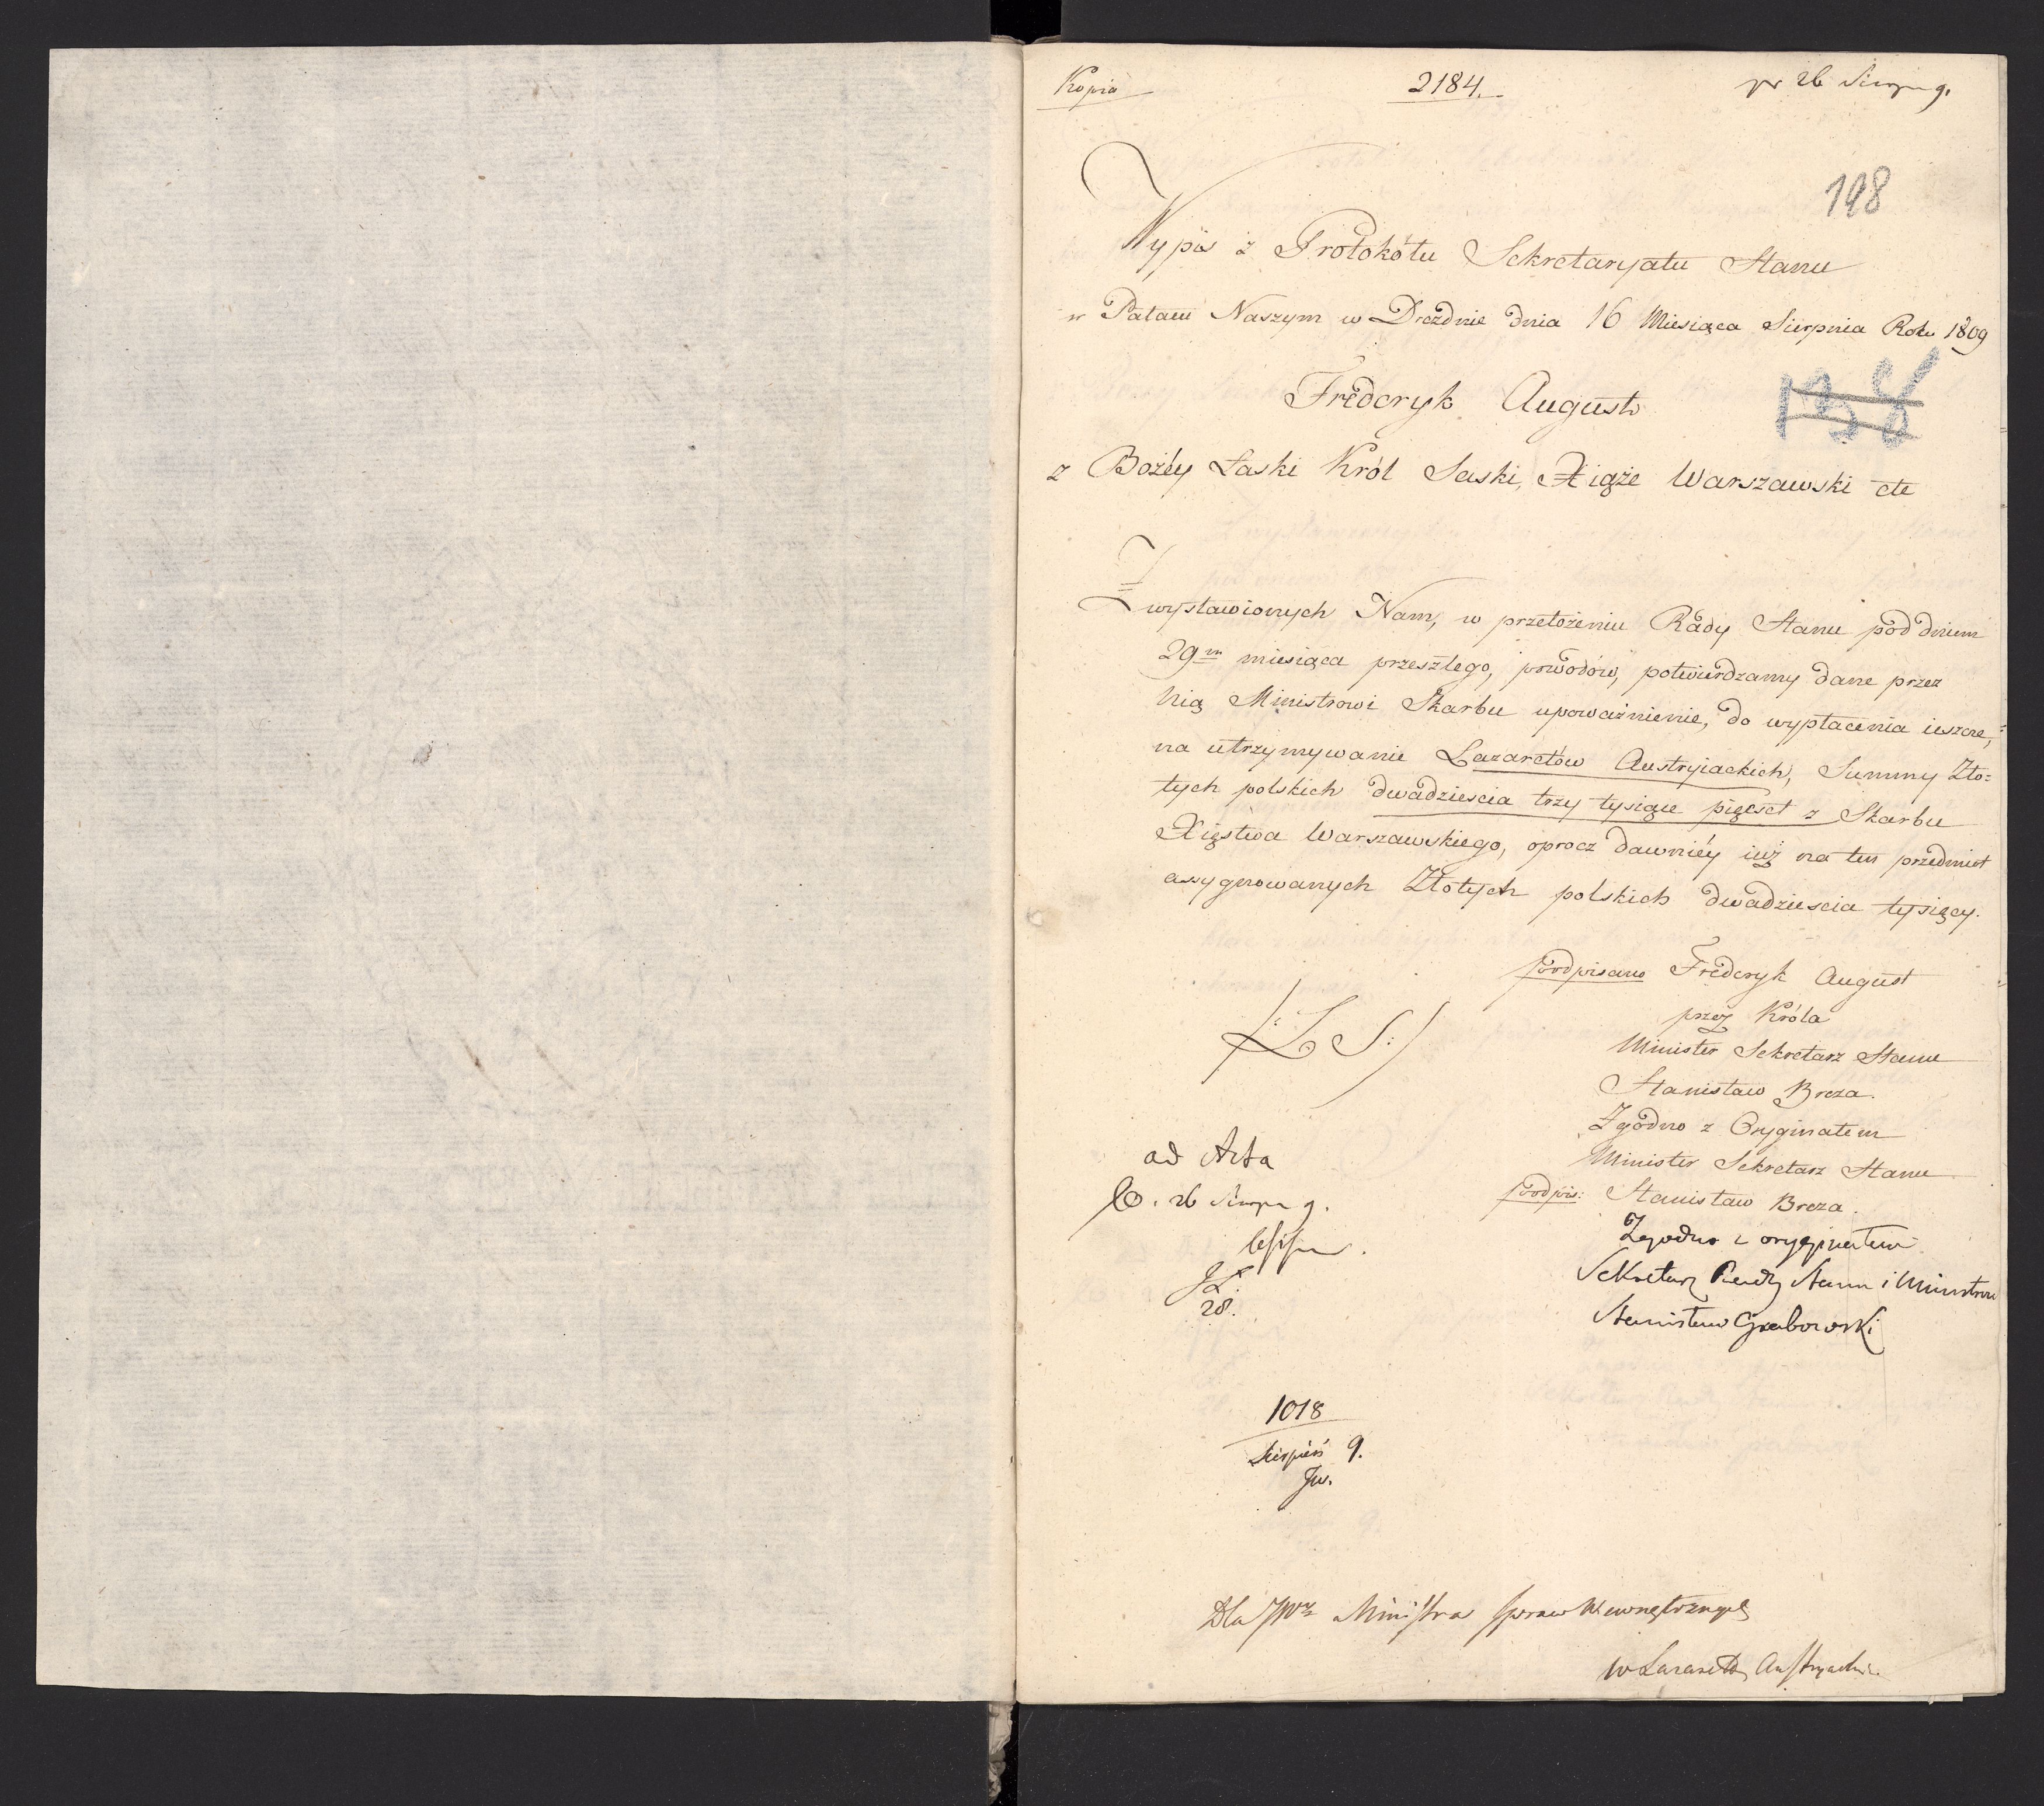 Kopia
2184.
pr 26 Sierpn 9.
198
Wypis z Protokółu Sekretaryatu Stanu
w Pałacu Naszym w Dreźdnie dnia 16 Miesiąca Sierpnia Roku 1809
138
Fréderyk August
z Bożéy Łaski Król Saski, Xiąże Warszawski etc
Z wystawionych Nam, w przełożeniu Rady Stanu pod dniem
29m miesiąca przeszłego, powodów, potwierdzamy dane przez
Nią Ministrowi Skarbu upoważnienie, do wypłacenia ieszcze,
na utrzymywanie Lazaretów Austryiackich, Summy Zło=
tych polskich dwadzieścia trzy tysiące pięćset z Skarbu
Xięstwa Warszawskiego, oprocz dawniéy iuż na ten przedmiot
assygnowanych Złotych polskich dwadzieścia tysięcy.
podpisano Fréderyk August
/: L S :/
przez Króla
Minister Sekretarz Stanu
Stanisław Breza.
Zgodno z Oryginałem
Minister Sekretarz Stanu
podpis: Stanisław Breza.
Zgodno z oryginałem
Sekretarz Rady Stanu i Ministrów
Stanisław Grabowski
ad Acta
26 Sierpn 9.
28.
1018
Sierpień 9.
Dla JWo Ministra Spraw Wewnętrznych
w Lazaretów Austryackich